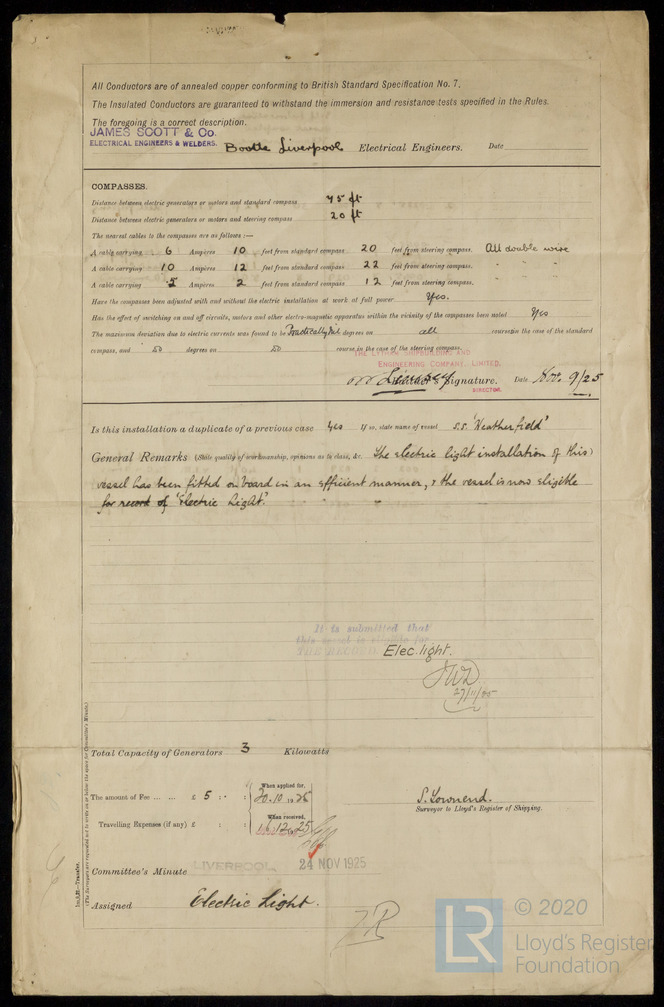 All Conductors are of annealed copper conforming to British Standard Specification No. 7.
The Insulated Conductors are guaranteed to withstand the immersion and resistance tests specified in the Rules.
The foregoing is a correct description.
JAMES SCOTT & Co.
ELECTRICAL ENGINEERS & WELDERS. Bootle Liverpool Electrical Engineers. Date
COMPASSES.
Distance between electric generators or motors and standard compass 45 ft
Distance between electric generators or motors and steering compass 20 ft
The nearest cables to the compasses are as follows:—
A cable carrying 6 Ampères 10 feet from standard compass 20 feet from steering compass. All double wire
A cable carrying 10 Ampères 12 feet from standard compass 22 feet from steering compass. " " "
A cable carrying 5 Ampères 2 feet from standard compass 12 feet from steering compass. " " "
Have the compasses been adjusted with and without the electric installation at work at full power Yes.
Has the effect of switching on and off circuits, motors and other electro-magnetic apparatus within the vicinity of the compasses been noted Yes
The maximum deviation due to electric currents was found to be Practically Nil degrees on all courses in the case of the standard
compass, and do degrees on do course in the case of the steering compass.
THE LYTHAM SHIPBUILDING AND
ENGINEERING COMPANY, LIMITED.
Builder's Signature. Date Nov. 9/25
DIRECTOR.
Is this installation a duplicate of a previous case Yes If so, state name of vessel s.s. "Weatherfield"
General Remarks (State quality of workmanship, opinions as to class, &c. The electric light installation of this
vessel has been fitted on board in an efficient manner, & the vessel is now eligible
for record of "Electric Light".
It is submitted that
this vessel is eligible for
THE RECORD. Elec. light.
JWD
27/11/25
Total Capacity of Generators 3 Kilowatts
The amount of Fee ... ... £ 5 : - : When applied for, 30.10.1925
S. Townend.
Surveyor to Lloyd's Register of Shipping.
Travelling Expenses (if any) £ : : When received, 16.12.1925
Committee's Minute LIVERPOOL 24 NOV 1925
Assigned Electric Light.
Im.3,25—Transfer.
(The Surveyors are requested not to write on or below the space for Committee's Minute.)
LR
© 2020
Lloyd's Register
Foundation